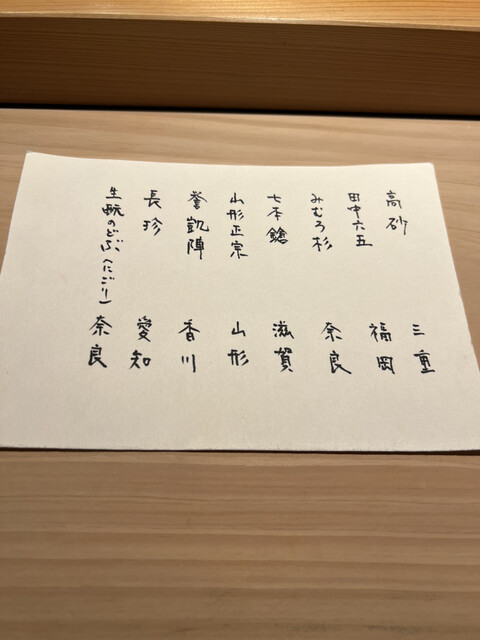 高砂 三重
田中六五 福岡
みむろ杉 奈良
七本鎗 滋賀
山形正宗 山形
誉凱陣 香川
長珍 愛知
生酛のどぶ(にごり) 奈良